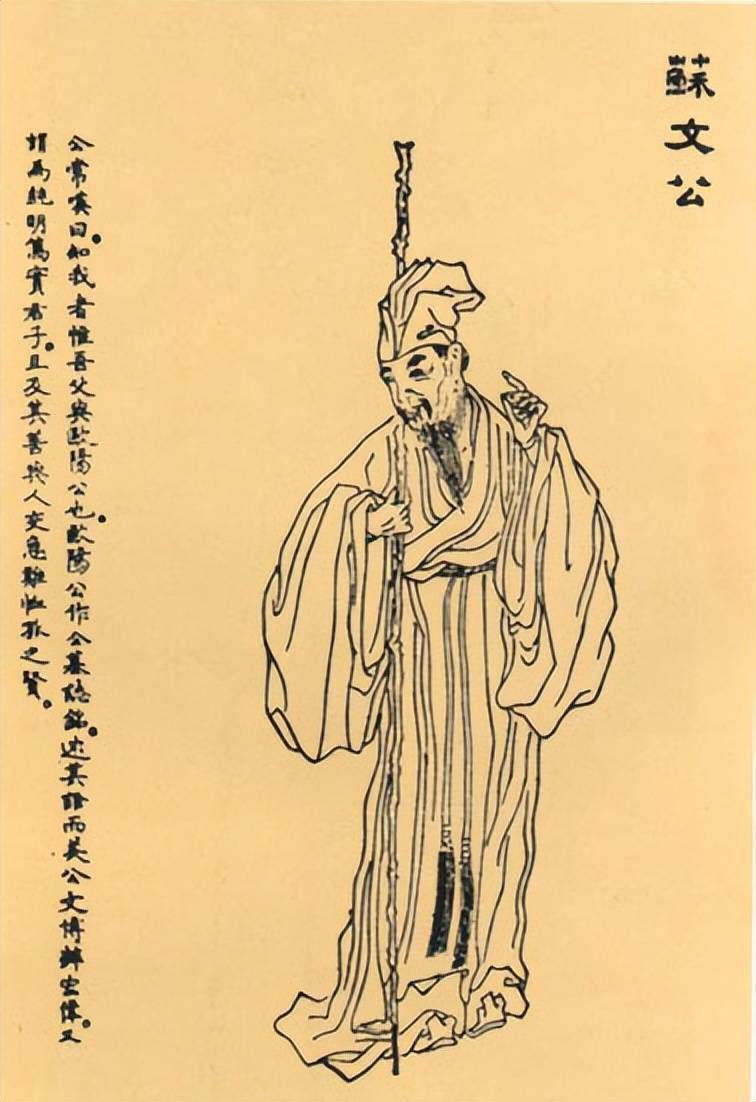 蘇文公
公常嘆曰。知我者惟吾父與歐陽公也。歐陽公作公墓誌銘。述其而美公文博辯宏偉。又
謂為純明篤實君子。且及其善與人交急難恤孤之賢。